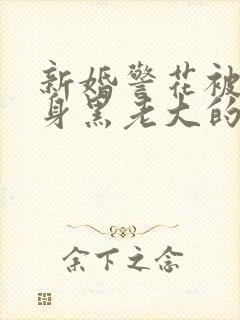 新婚警花被
身黑老大的
余下之念